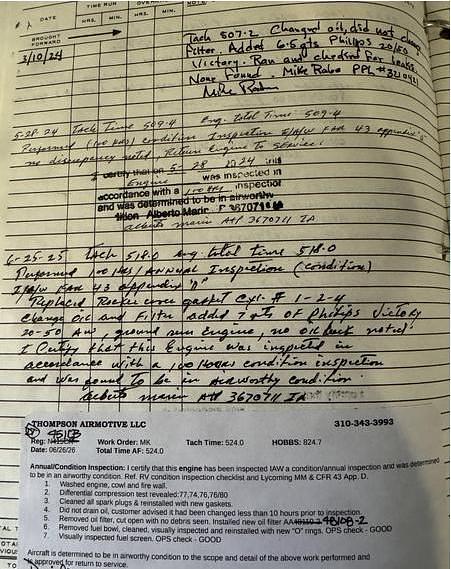 TIME RUN
DATE
HRS.
MIN.
HRS.
NOTE
BROUGHT FORWARD
3/10/24
Tach 507.2 Changed oil, did not change
filter. Added 6.5 qts Phillips 20/50
Victory. Ran and checked for leaks.
None found. Mike Rabe PPL #
5-28-24 Tach Time 509.4 Eng. total Time 509.4
Performed (100 HRS) condition Inspection I/A/W FAR 43 appendix "D"
no discrepancy noted, Return Engine to service.
I certify that on 5-28 2024 this
Engine was inspected in
accordance with a 100 HRS inspection
and was determined to be in airworthy
Alberto Marin
alberto marin A&P 3670711 IA
6-25-25 Tach 518.0 eng. total time 518.0
Performed 100 HRS / ANNUAL Inspection (condition)
I/A/W FAR 43 appendix "D"
Replaced Rocker cover gasket Cyl. # 1-2-4
Change Oil and Filter added 7 qts OF Philips Victory
20-50 AW, ground run Engine, no oil leak noted.
I Certify that this Engine was inspected in
accordance with a 100 Hours condition inspection
and was found to be in Airworthy condition.
alberto marin A&P 3670711 IA
THOMPSON AIRMOTIVE LLC 310-343-3993
Reg: Work Order: MK Tach Time: 524.0 HOBBS: 824.7
Date: 06/26/26 Total Time AF: 524.0
Annual/Condition Inspection: I certify that this engine has been inspected IAW a condition/annual inspection and was determined
to be in an airworthy condition. Ref. RV condition inspection checklist and Lycoming MM & CFR 43 App. D.
1. Washed engine, cowl and fire wall.
2. Differential compression test revealed:77,74,76,76/80
3. Cleaned all spark plugs & reinstalled with new gaskets.
4. Did not drain oil, customer advised it had been changed less than 10 hours prior to inspection.
5. Removed oil filter, cut open with no debris seen. Installed new oil filter AA48108-2
6. Removed fuel bowl, cleaned, visually inspected and reinstalled with new "O" rings. OPS check - GOOD
7. Visually inspected fuel screen. OPS check - GOOD
Aircraft is determined to be in airworthy condition to the scope and detail of the above work performed and
is approved for return to service.